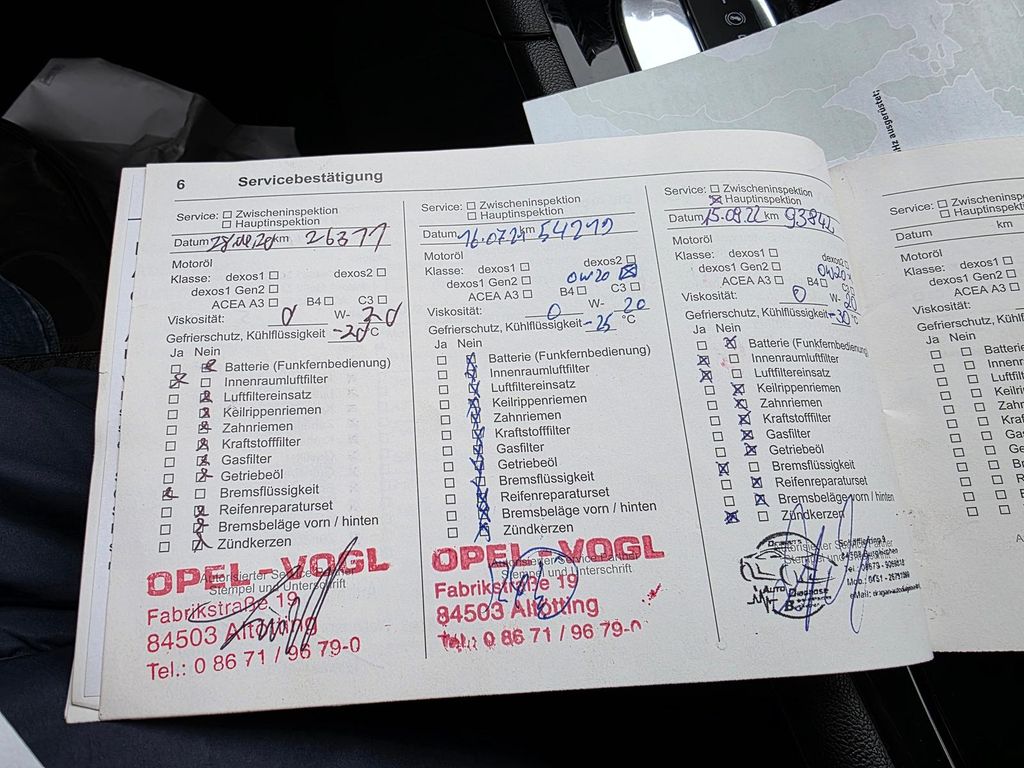 Hz ausgerüstet:
6 Servicebestätigung
Service: ☐ Zwischeninspektion
☐ Hauptinspektion
Datum km 26377
Motoröl
Klasse: dexos1 ☐ dexos2 ☐
dexos1 Gen2 ☐
ACEA A3 ☐ B4 ☐ C3 ☐
Viskosität: 0 W- 20
Gefrierschutz, Kühlflüssigkeit -20 °C
Ja Nein
☐ ☒ Batterie (Funkfernbedienung)
☒ ☐ Innenraumluftfilter
☐ ☒ Luftfiltereinsatz
☐ ☒ Keilrippenriemen
☐ ☒ Zahnriemen
☐ ☒ Kraftstofffilter
☐ ☒ Gasfilter
☐ ☒ Getriebeöl
☒ ☐ Bremsflüssigkeit
☐ ☒ Reifenreparaturset
☐ ☒ Bremsbeläge vorn / hinten
☐ ☒ Zündkerzen
Autorisierter Servicepartner
Stempel und Unterschrift
OPEL-VOGL
Fabrikstraße 19
84503 Altötting
Tel.: 0 86 71 / 96 79-0
Service: ☐ Zwischeninspektion
☐ Hauptinspektion
Datum 16.07.21 km 54219
Motoröl
Klasse: dexos1 ☐ dexos2 ☐
dexos1 Gen2 ☐ 0W20 ☒
ACEA A3 ☐ B4 ☐ C3
Viskosität: 0 W- 20
Gefrierschutz, Kühlflüssigkeit -25 °C
Ja Nein
☐ ☒ Batterie (Funkfernbedienung)
☐ ☒ Innenraumluftfilter
☐ ☒ Luftfiltereinsatz
☐ ☒ Keilrippenriemen
☐ ☒ Zahnriemen
☐ ☒ Kraftstofffilter
☐ ☒ Gasfilter
☐ ☒ Getriebeöl
☐ ☒ Bremsflüssigkeit
☐ ☒ Reifenreparaturset
☐ ☒ Bremsbeläge vorn / hinten
☐ ☒ Zündkerzen
Autorisierter Servicepartner
Stempel und Unterschrift
OPEL-VOGL
Fabrikstraße 19
84503 Altötting
Tel.: 0 86 71 / 96 79-0
Service: ☐ Zwischeninspektion
☒ Hauptinspektion
Datum 15.09.22 km 93842
Motoröl
Klasse: dexos1 ☐ dexos2 ☐
dexos1 Gen2 ☐ 0W20
ACEA A3 ☐ B4 ☐ C3
Viskosität: 0 W- 20
Gefrierschutz, Kühlflüssigkeit -30 °C
Ja Nein
☐ ☒ Batterie (Funkfernbedienung)
☒ ☐ Innenraumluftfilter
☒ ☐ Luftfiltereinsatz
☐ ☒ Keilrippenriemen
☐ ☒ Zahnriemen
☐ ☒ Kraftstofffilter
☐ ☒ Gasfilter
☐ ☒ Getriebeöl
☒ ☐ Bremsflüssigkeit
☐ ☒ Reifenreparaturset
☐ ☒ Bremsbeläge vorn / hinten
☒ ☐ Zündkerzen
AUTO
Service: ☐ Zwischeninspektion
☐ Hauptinspektion
Datum km
Motoröl
Klasse: dexos1 ☐
dexos1 Gen2 ☐
ACEA A3 ☐
Viskosität:
Gefrierschutz, Kühlflüss
Ja Nein
☐ ☐ Batterie
☐ ☐ Innenra
☐ ☐ Luftfilt
☐ ☐ Keilrip
☐ ☐ Zahnri
☐ ☐ Krafts
☐ ☐ Gasfi
☐ ☐ Getri
☐ ☐ Brem
☐ ☐ Reife
☐ ☐ Bre
☐ ☐ Zün